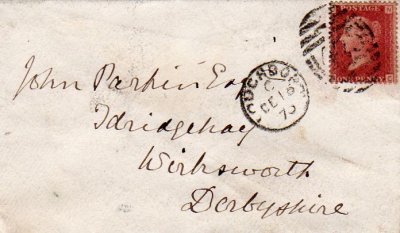 POSTAGE
John Parkin Esq
ONE PENNY
LOUGHBORO
C
DE 16
73
Idridgehay
Wirksworth
Derbyshire